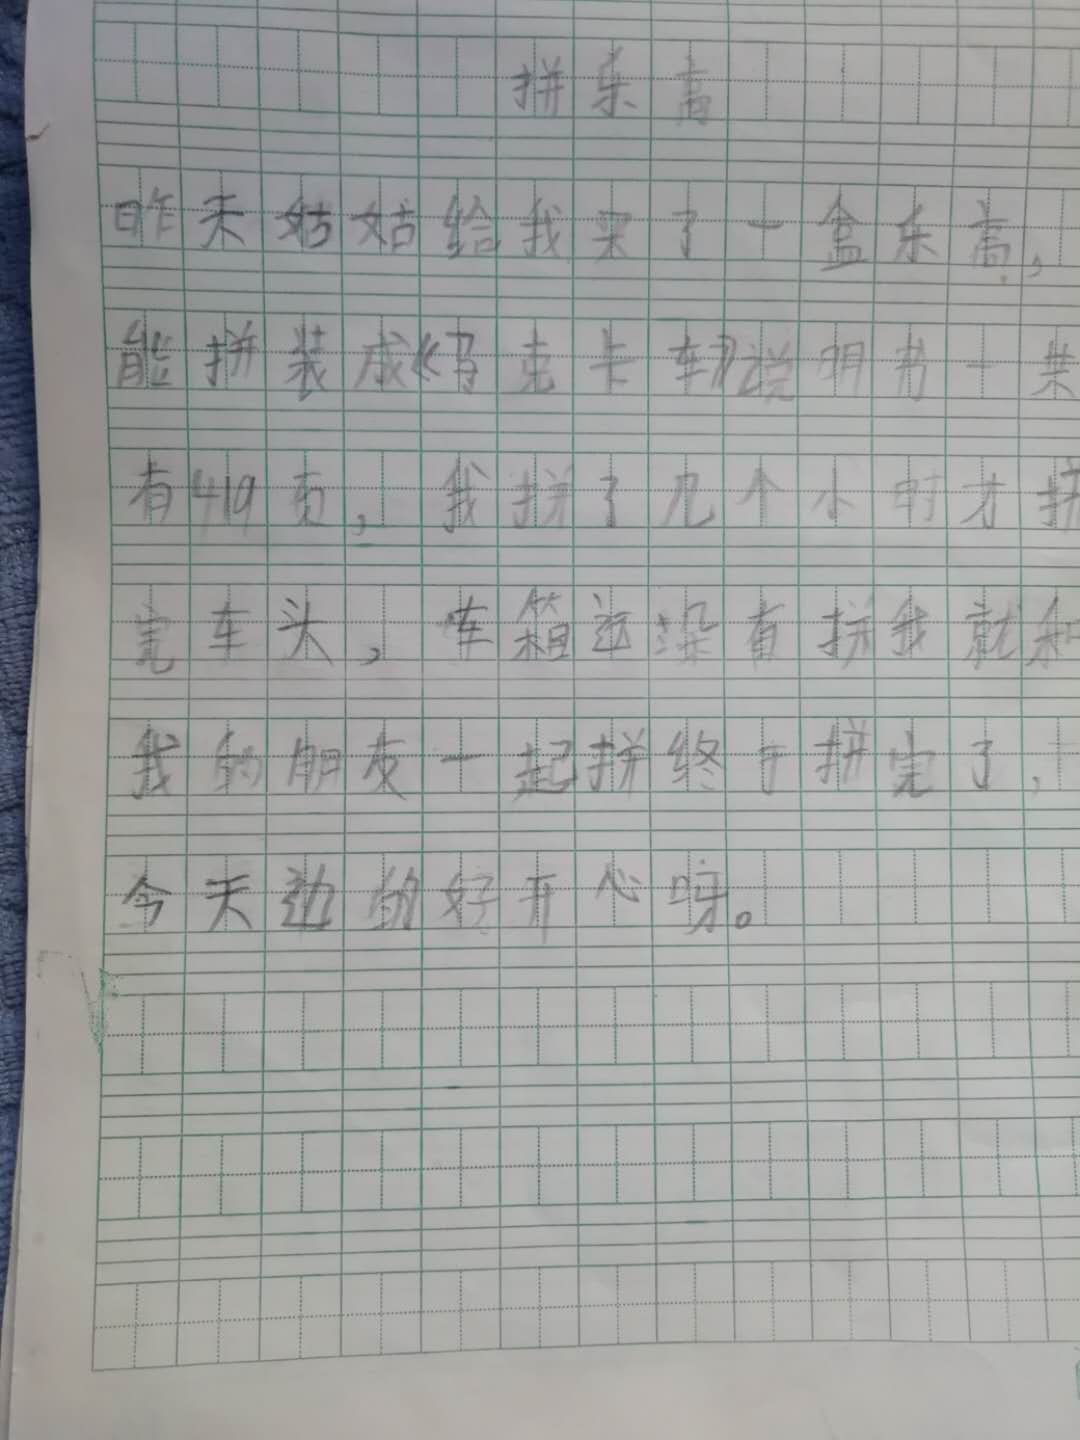 拼乐高
昨天姑姑给我买了一盒乐高,
能拼装成《马克卡车》说明书一共
有419页,我拼了几个小时才拼
完车头,车箱还没有拼我就和
我的朋友一起拼终于拼完了,
今天过的好开心呀。